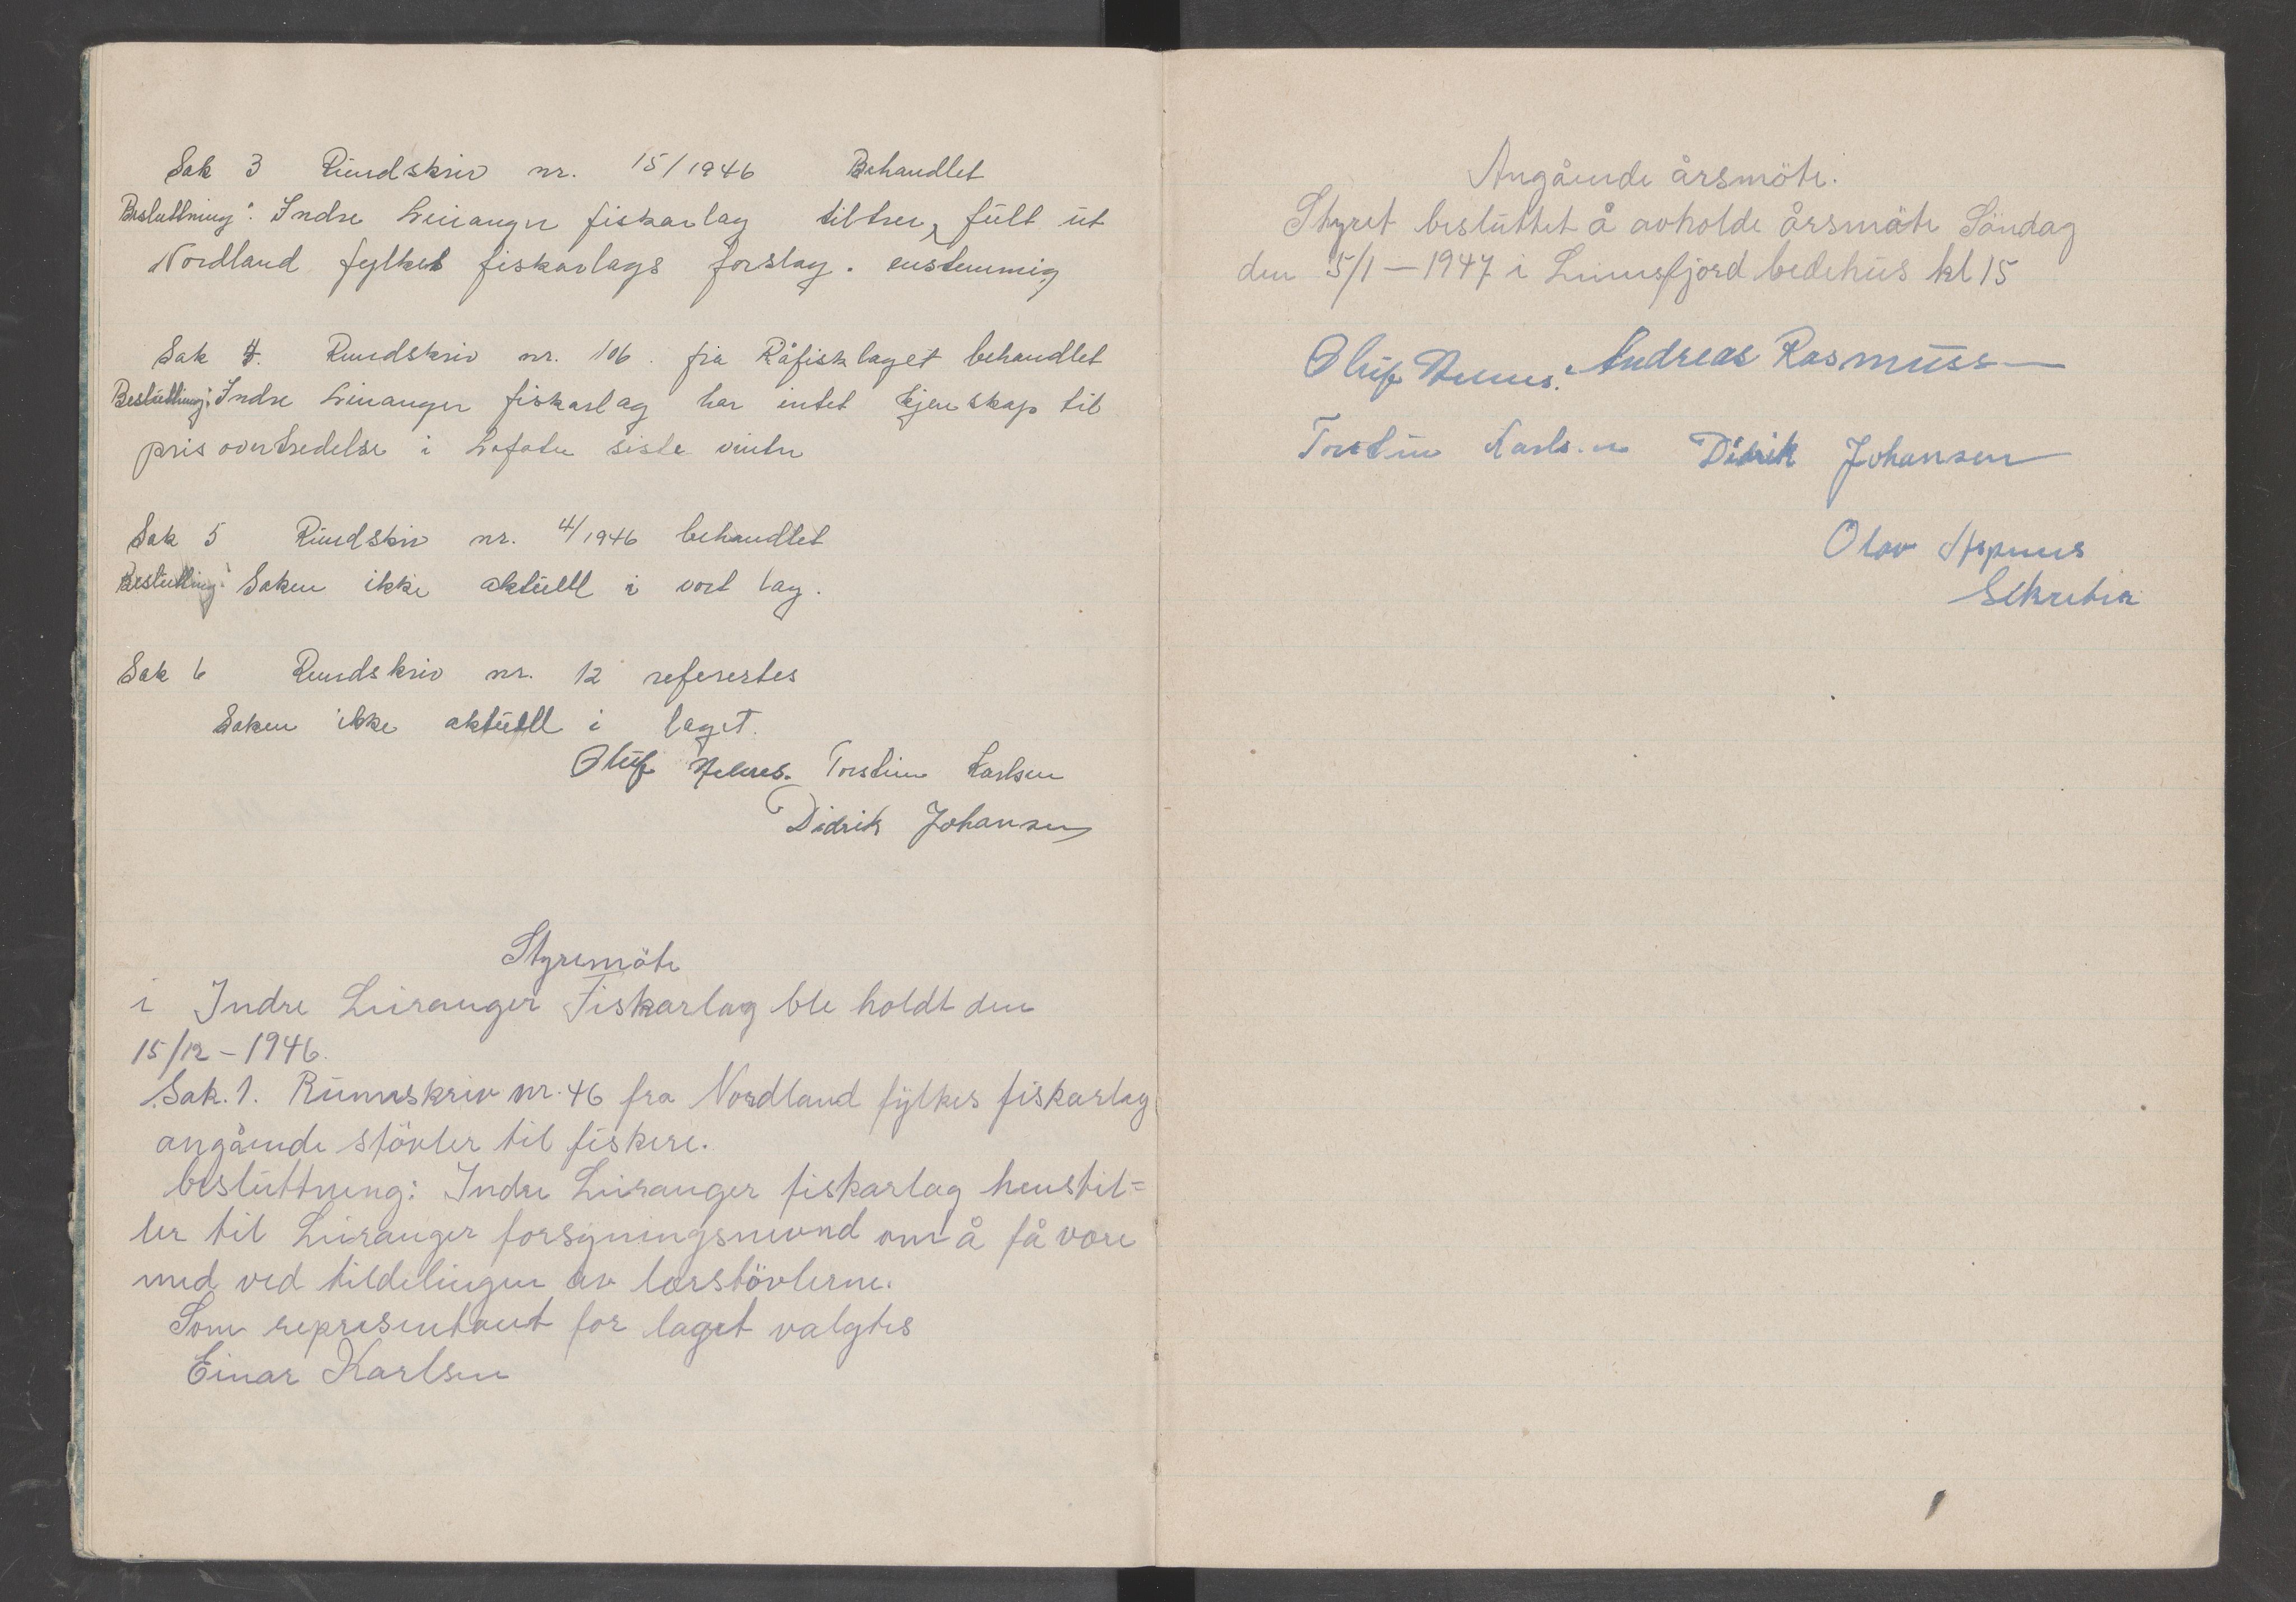 Sak 3 Rundskriv nr. 15/1946 Behandlet
Besluttning: Indre Luranger fiskarlag tiltrer fult ut
Nordland fylkes fiskarlags forslag. enstemmig
Sak 4. Rundskriv nr. 106. fra Råfisklaget behandlet
Beslutting: Indre Luranger fiskarlag har intet kjenskap til
prisovertredelse i Lofoten siste vinter
Sak 5 Rundskriv nr. 4/1946 behandlet
Beslutting: Saken ikke aktuell i vort lag.
Sak 6 Rundskriv nr. 12 referertes
Saken ikke aktuell i laget.
Oluf Torstein Karlsen
Didrik Johansen
Styremöte
i Indre Luranger Fiskarlag ble holdt den
15/12-1946.
Sak. 1. Runnskriv nr. 46 fra Nordland fylkes fiskarlag
angående stövler til fiskere.
besluttning: Indre Luranger fiskarlag henstil=
ler til Luranger forsyningsnevnd om å få være
med ved tildelingen av lærstövlerne.
Som representant for laget valgtes
Einar Karlsen
Angående årsmöte.
Styret besluttet å avholde årsmöte Söndag
den 5/1-1947 i bedehus kl 15
Oluf Andreas Rasmuss
Torstein Karlsen Didrik Johansen
Olav
Sekretær